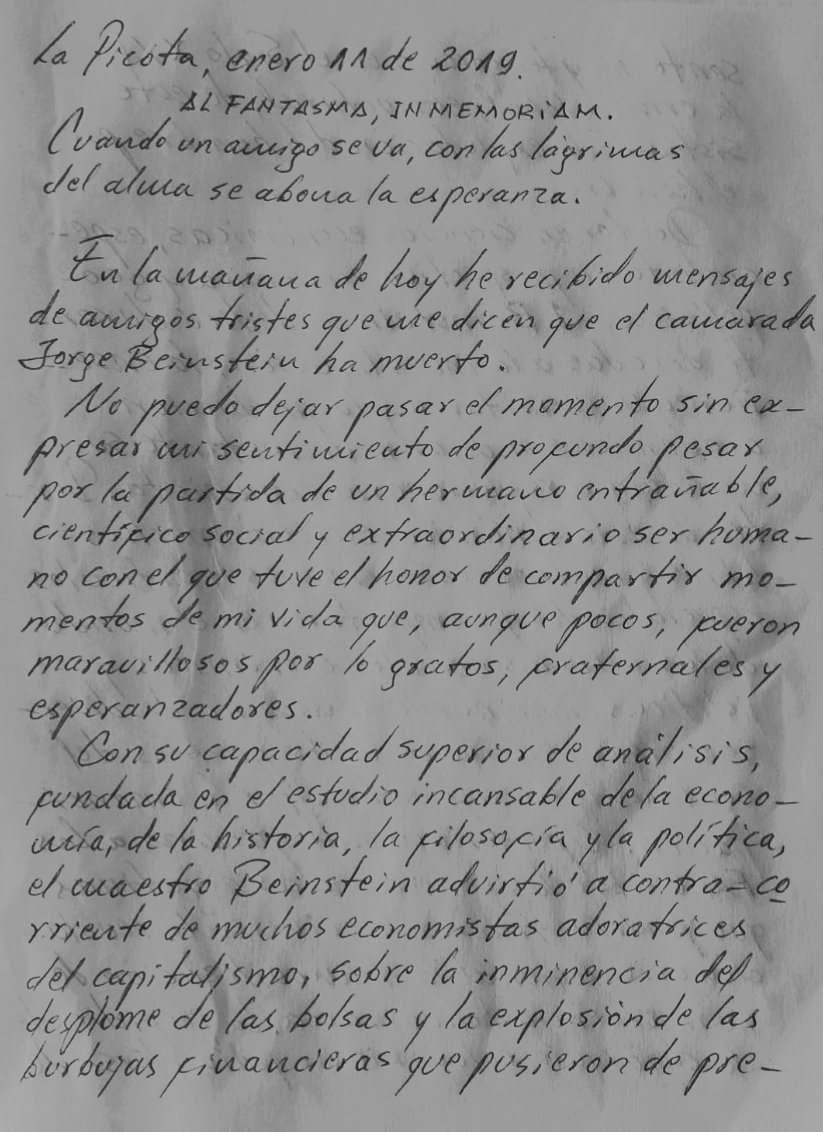 La Picota, enero 11 de 2019.
AL FANTASMA, IN MEMORIAM.
Cuando un amigo se va, con las lágrimas
del alma se abona la esperanza.
En la mañana de hoy he recibido mensajes
de amigos tristes que me dicen que el camarada
Jorge Beinstein ha muerto.
No puedo dejar pasar el momento sin ex-
presar mi sentimiento de profundo pesar
por la partida de un hermano entrañable,
científico social y extraordinario ser huma-
no con el que tuve el honor de compartir mo-
mentos de mi vida que, aunque pocos, fueron
maravillosos por lo gratos, fraternales y
esperanzadores.
Con su capacidad superior de análisis,
fundada en el estudio incansable de la econo-
mía, de la historia, la filosofía y la política,
el maestro Beinstein advirtió a contra-co
rriente de muchos economistas adoratrices
del capitalismo, sobre la inminencia del
desplome de las bolsas y la explosión de las
burbujas financieras que pusieron de pre-